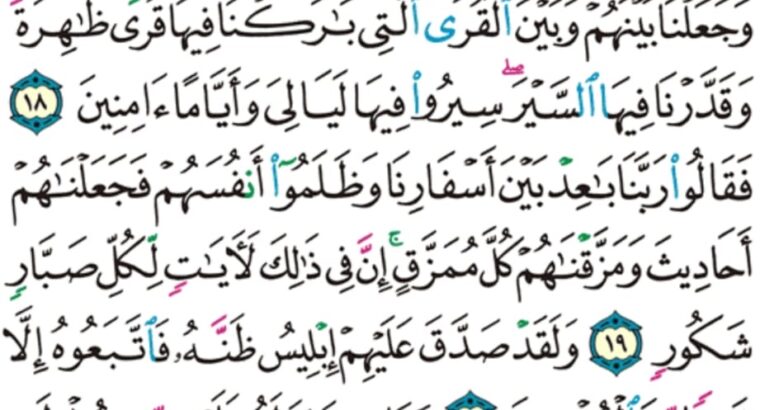 وَجَعَلْنَا بَيْنَهُمْ وَبَيْنَ ٱلْقُرَى ٱلَّتِي بَٰرَكْنَا فِيهَا قُرًى ظَٰهِرَةً
وَقَدَّرْنَا فِيهَا ٱلسَّيْرَۖ سِيرُوا۟ فِيهَا لَيَالِىَ وَأَيَّامًا ءَامِنِينَ ١٨
فَقَالُوا۟ رَبَّنَا بَٰعِدْ بَيْنَ أَسْفَارِنَا وَظَلَمُوٓا۟ أَنفُسَهُمْ فَجَعَلْنَٰهُمْ
أَحَادِيثَ وَمَزَّقْنَٰهُمْ كُلَّ مُمَزَّقٍۚ إِنَّ فِى ذَٰلِكَ لَأَيَٰتٍ لِّكُلِّ صَبَّارٍ
شَكُورٍ ١٩ وَلَقَدْ صَدَّقَ عَلَيْهِمْ إِبْلِيسُ ظَنَّهُۥ فَٱتَّبَعُوهُ إِلَّا